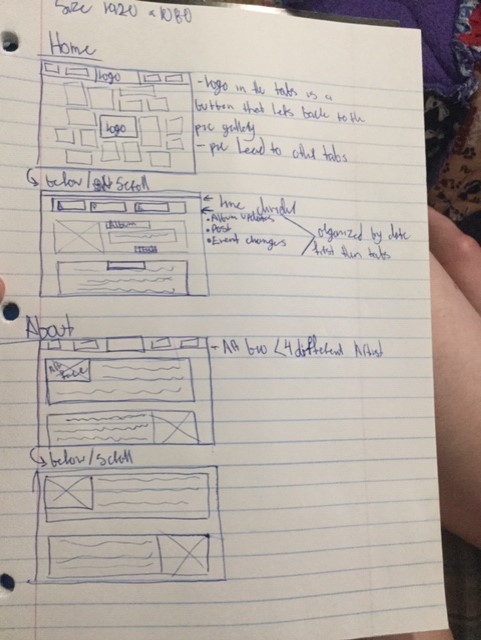 Size 1920 x 1080
Home
Logo
- Logo in the tabs is a
button that lets back to the
pic gallery
Logo
- pic Lead to other tabs
below/ scroll
line divider
• Album updates
• Post
• Event changes
organized by date
first then tabs
Album
About
- AA bio < 4 different Artist
AA
Face
below/scroll